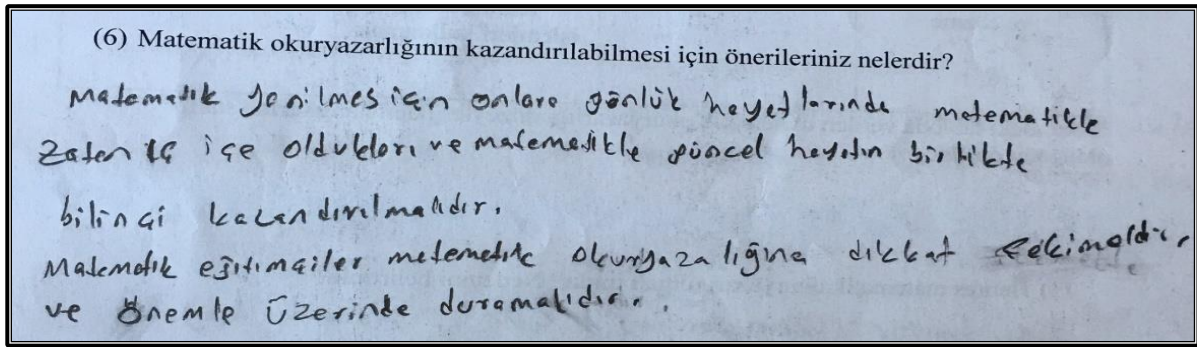 (6) Matematik okuryazarlığının kazandırılabilmesi için önerileriniz nelerdir?
Matematik yenilmes için onlara günlük hayatlarında matematikle
zaten iç içe oldukları ve matematikle güncel hayatın birlikte
bilinçi kazandırılmalıdır.
Matematik eğitimciler matematik okuryazalığına dikkat çekimeldir,
ve önemle üzerinde duramalıdır.